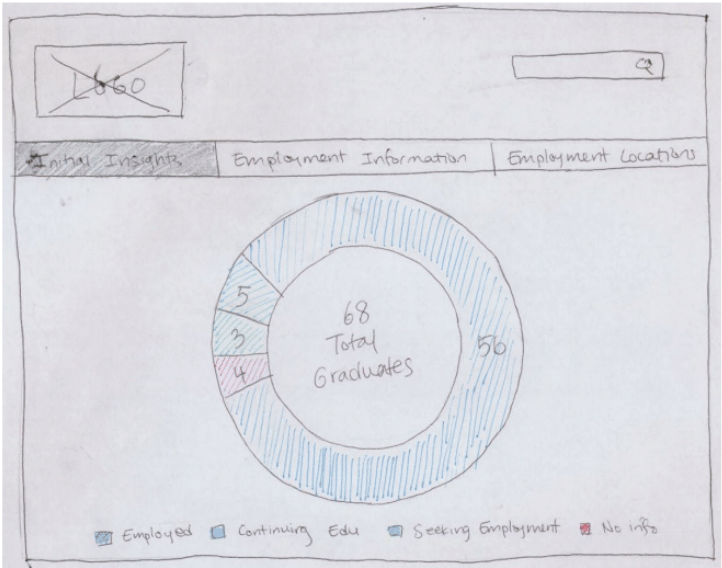 LOGO
Initial Insights
Employment Information
Employment Locations
5
3
4
56
68
Total
Graduates
Employed
Continuing Edu
Seeking Employment
No info